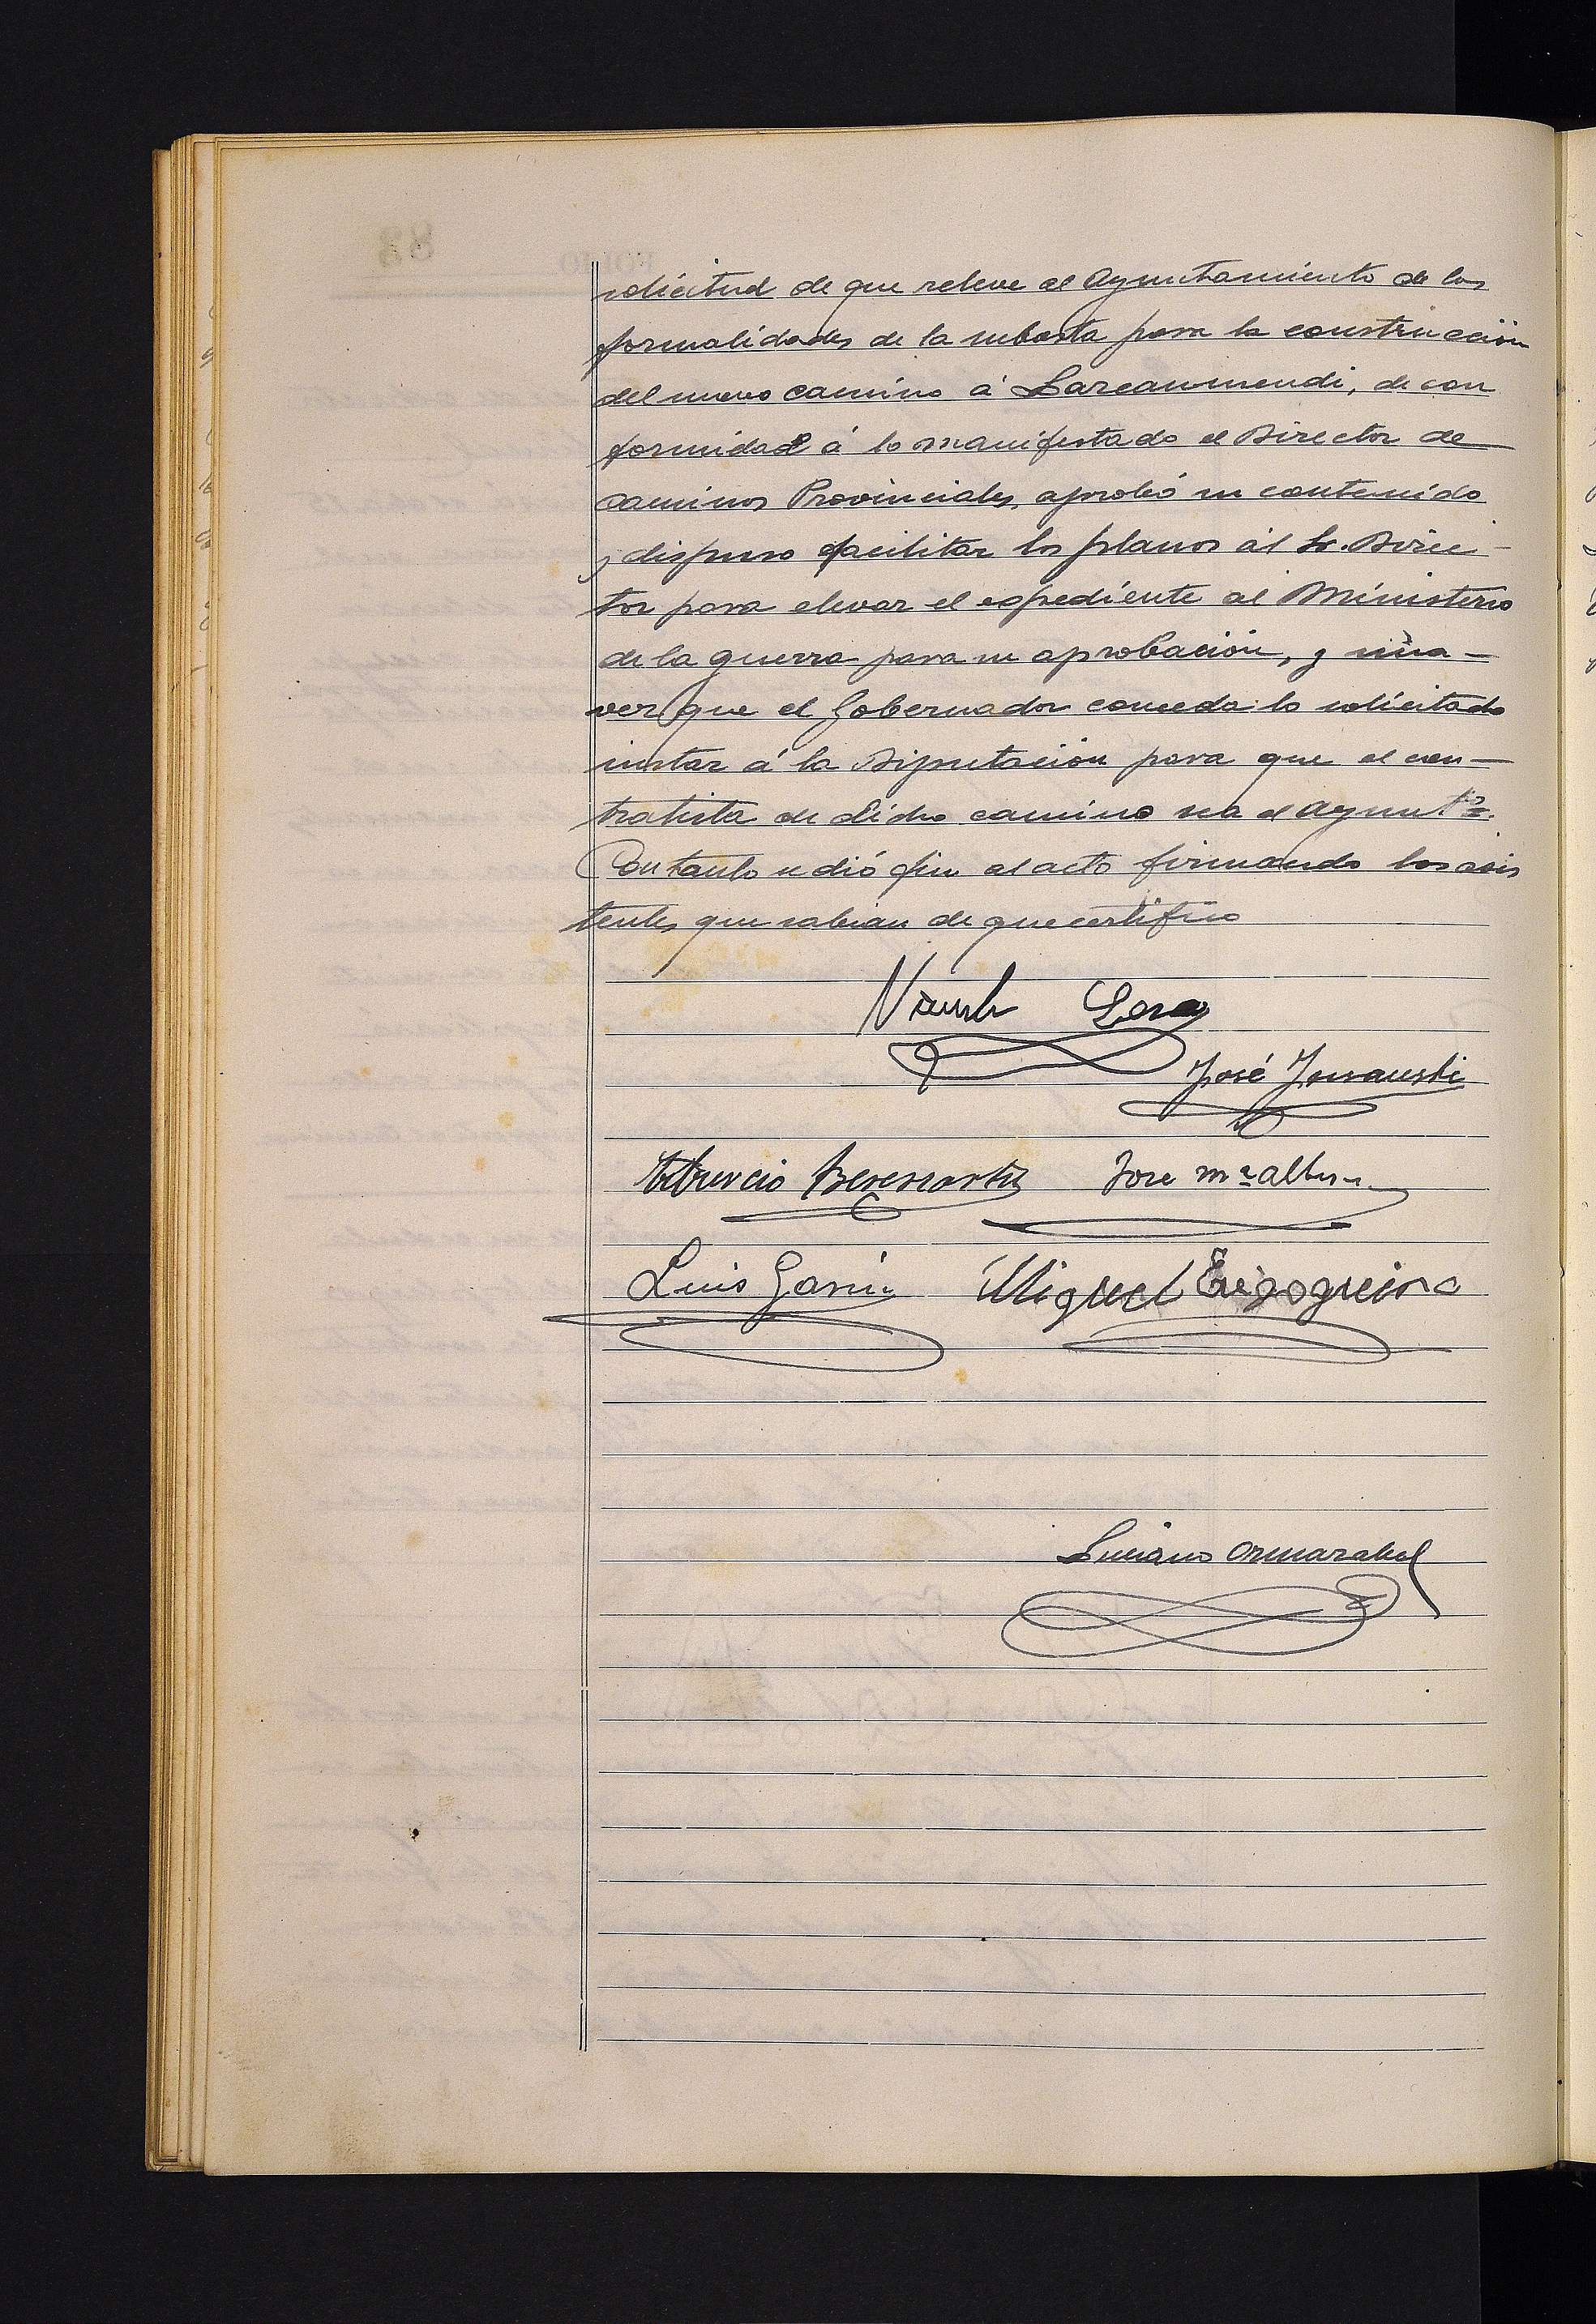 solicitud de que releve al Ayuntamiento de las
formalidades de la subasta para la construcción
del nuevo camino á Larcanmendi, de con
formidad á lo manifestado el Director de
caminos Provinciales, aprobó su contenido
y dispuso facilitar los planos al Sr. Direc-
tor para elevar el expediente al Ministerio
de la guerra para su aprobación, y una-
vez que el Gobernador conceda lo solicitado
instar á la Diputación para que el con-
tratista de dicho camino sea el Ayuntº.
Con tanto se dió fin al acto firmando los asis
tentes que sabian de que certifico
José
Tiburcio José Mª
Luis Garin Miguel
Luciano Ormazabal